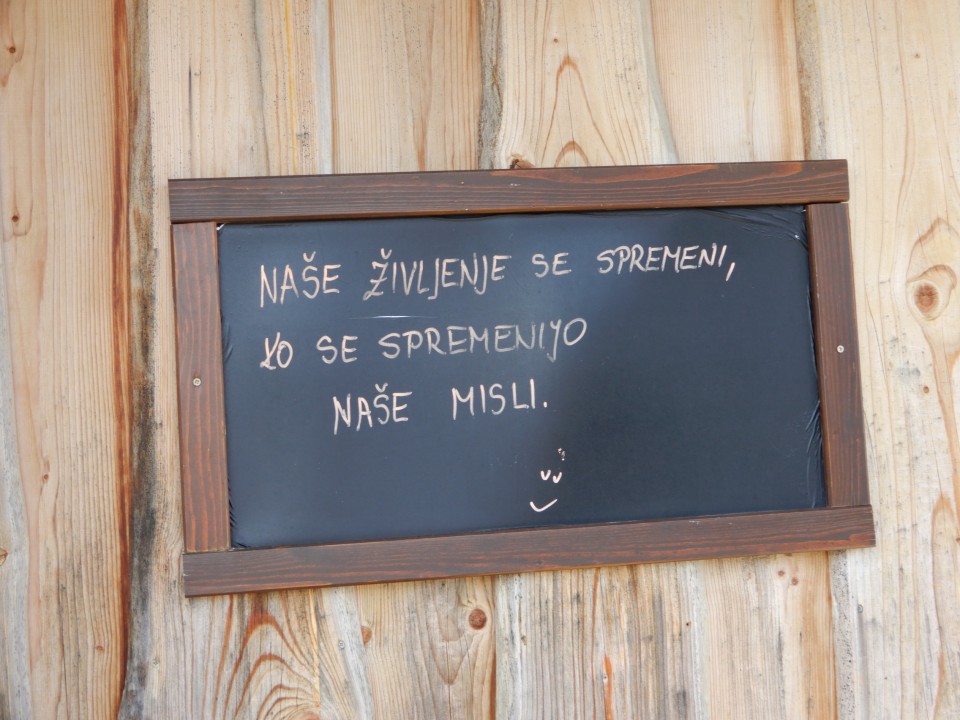 NAŠE ŽIVLJENJE SE SPREMENI,
KO SE SPREMENIJO
NAŠE MISLI.